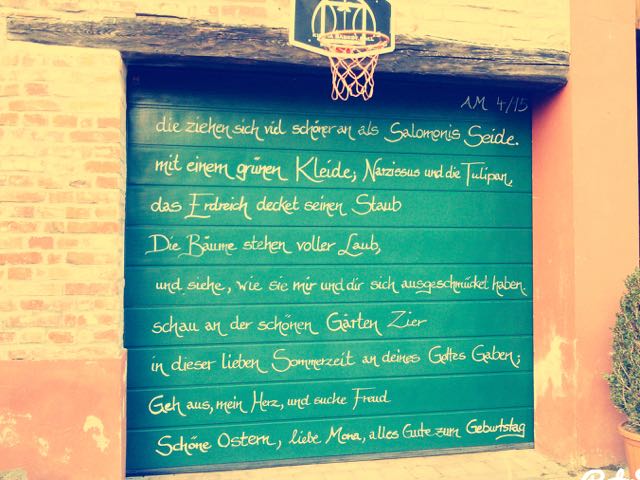 AM 4/15
die ziehen sich viel schöner an als Salomonis Seide.
mit einem grünen Kleide, Narzissus und die Tulipan,
das Erdreich decket seinen Staub
Die Bäume stehen voller Laub,
und siehe, wie sie mir und dir sich ausgeschmücket haben.
schau an der schönen Gärten Zier
in dieser lieben Sommerzeit an deines Gottes Gaben;
Geh aus, mein Herz, und suche Freud
Schöne Ostern, liebe Mona, alles Gute zum Geburtstag